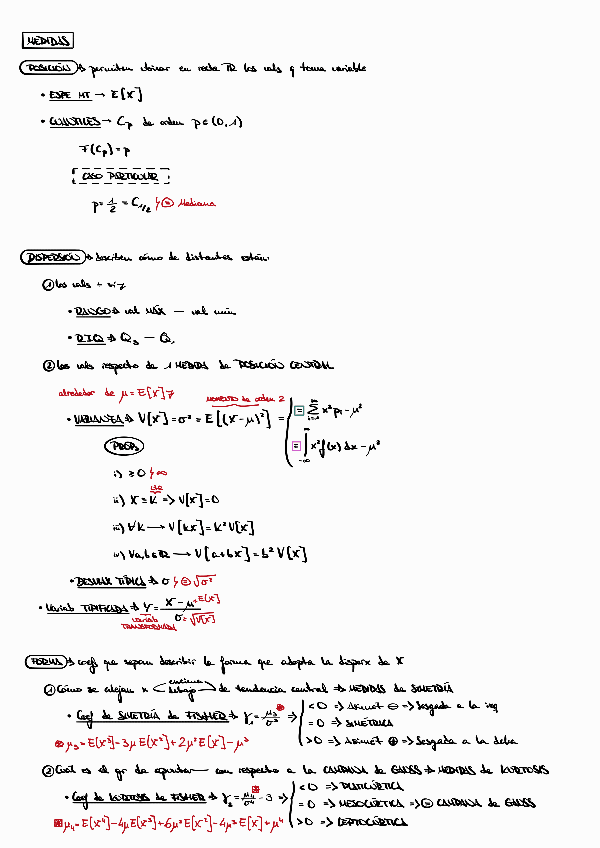 MEDIDAS
POSICIÓN ⇒ permiten ubicar en recta ℝ los vals q toma variable
• ESPE MT → E[X]
• CUANTILES → Cp de orden p∈(0,1)
F(Cp)=p
CASO PARTICULAR
p = 1/2 = C1/2 ⊜ Mediana
DISPERSIÓN ⇒ describen cómo de distantes están:
① los vals + si
• RANGO ⇒ val MÁX — val mín
• RIQ ⇒ Q3 — Q1
② los vals respecto de 1 MEDIDA de POSICIÓN CENTRAL
alrededor de μ = E[X]
MOMENTO de orden 2
• VARIANZA ⇒ V[X] = σ² = E[(X-μ)²] = { = Σ x² pi - μ²
= ∫ x² f(x) dx - μ²
PROPS
i) ≥ 0 ∞
ii) X = K => V[X] = 0
iii) ∀K → V[KX] = K² V[X]
iv) ∀a,b∈ℝ → V[a+bX] = b² V[X]
• DESVIAC TÍPICA ⇒ σ ⊜ √σ²
• Variab TIPIFICADA ⇒ Y = X - μ = E[X] / σ = √V[X]
variab TRANSFORMADA
FORMA ⇒ coefs que sepan describir la forma que adopta la disparx de X
① Cómo se alejan x encima debajo de tendencia central ⇒ MEDIDAS de SIMETRÍA
• Coef de SIMETRÍA de FISHER ⇒ γ1 = μ3/σ³ ⇒ { < 0 => Asimet ⊖ => Sesgada a la izq
= 0 => SIMÉTRICA
> 0 => Asimet ⊕ => Sesgada a la dcha
⊛ μ3 = E[X³] - 3μE[X²] + 2μ²E[X] - μ³
② Cuál es el gr de apuntar con respecto a la CAMPANA de GAUSS ⇒ MEDIDAS de KURTOSIS
• Coef de KURTOSIS de FISHER ⇒ γ2 = μ4/σ⁴ - 3 => { < 0 => PLATICÚRTICA
= 0 => MESOCÚRTICA => ⊜ CAMPANA de GAUSS
> 0 => LEPTOCÚRTICA
⊠ μ4 = E[X⁴] - 4μE[X³] + 6μ²E[X²] - 4μ³E[X] + μ⁴